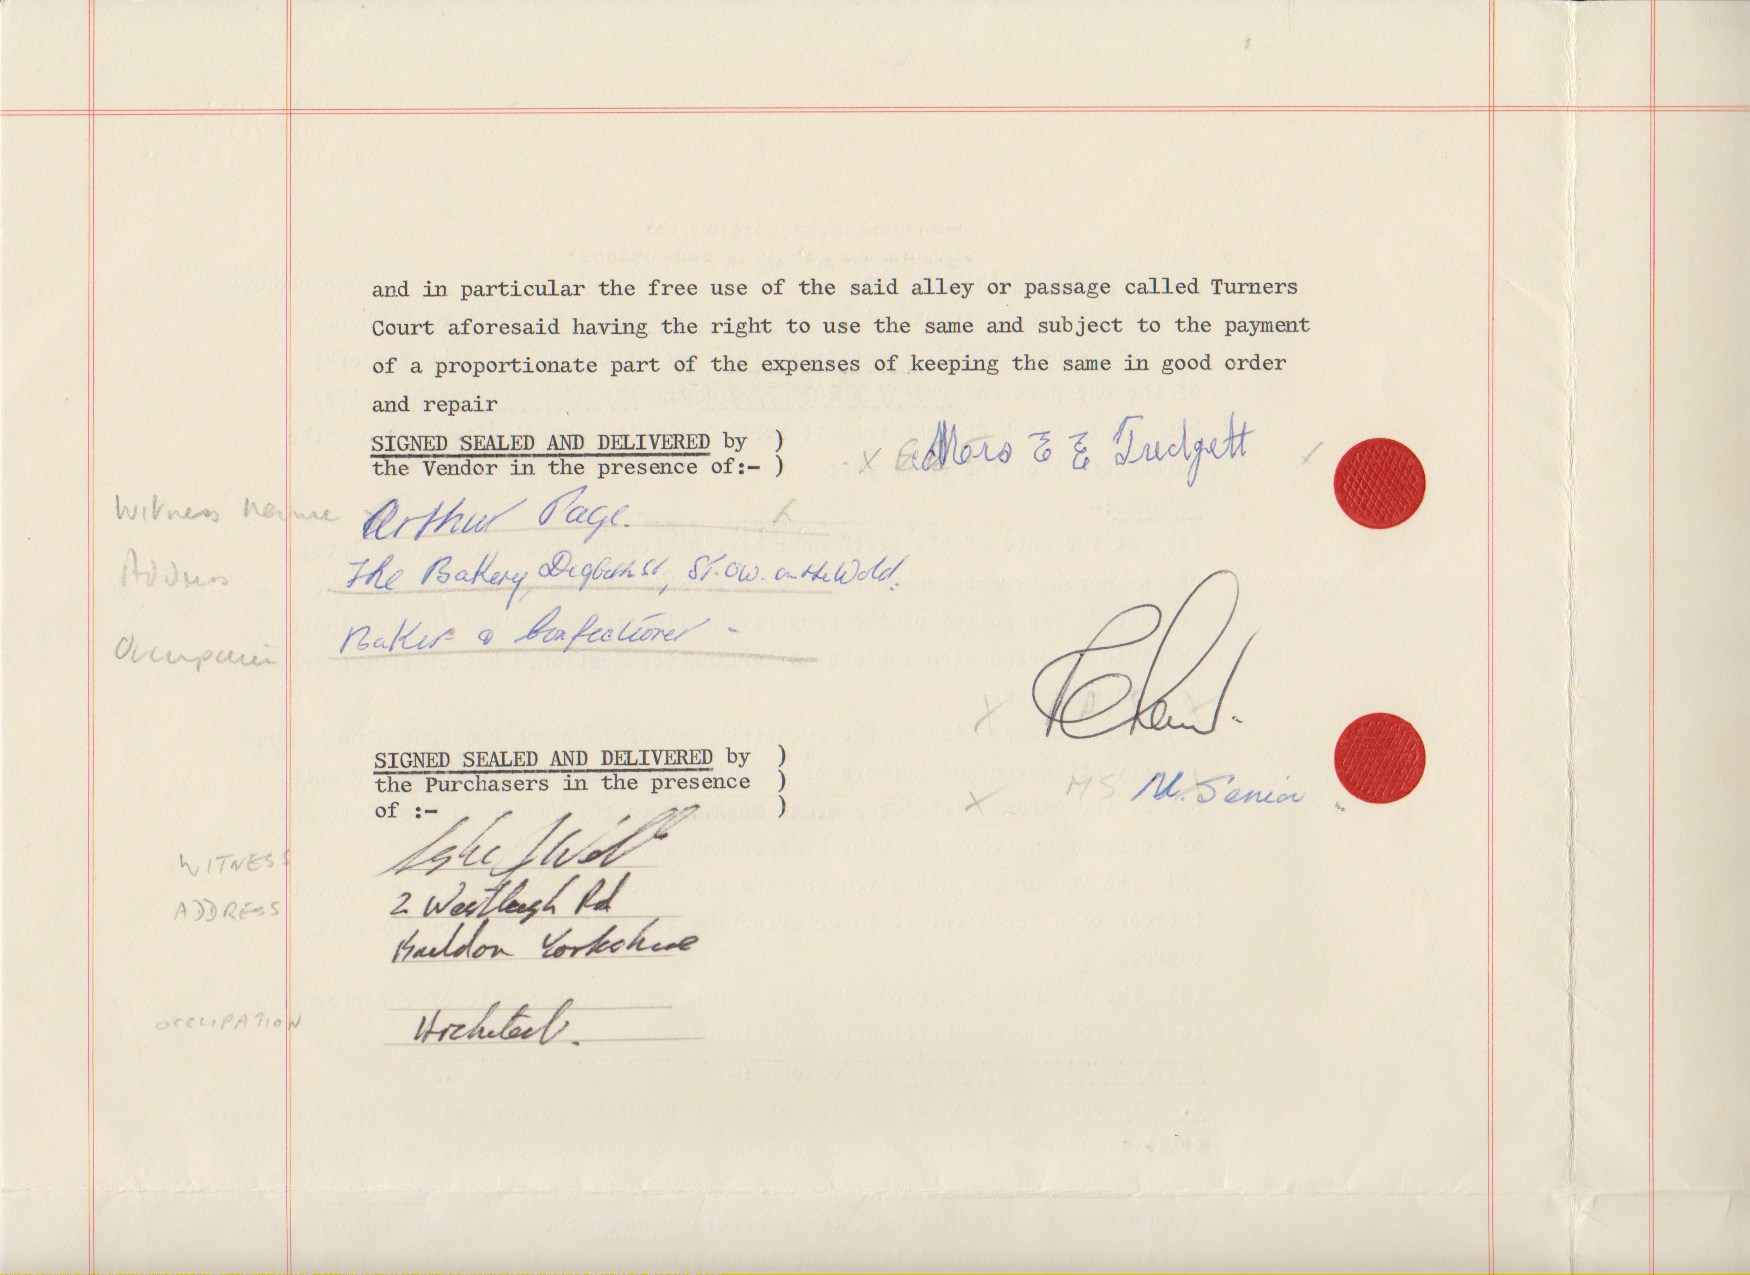 and in particular the free use of the said alley or passage called Turners
Court aforesaid having the right to use the same and subject to the payment
of a proportionate part of the expenses of keeping the same in good order
and repair
SIGNED SEALED AND DELIVERED by )
the Vendor in the presence of:- )
X Mrs E E Tredgett
Witness Name Arthur Page.
Address The Bakery, Digbeth St, St.ow. on the Wold.
Occupation Baker & Confectioner -
X
SIGNED SEALED AND DELIVERED by )
the Purchasers in the presence )
of :- )
X MS M. Senior
WITNESS
ADDRESS 2 Westleigh Rd
Baildon Yorkshire
OCCUPATION Architect.